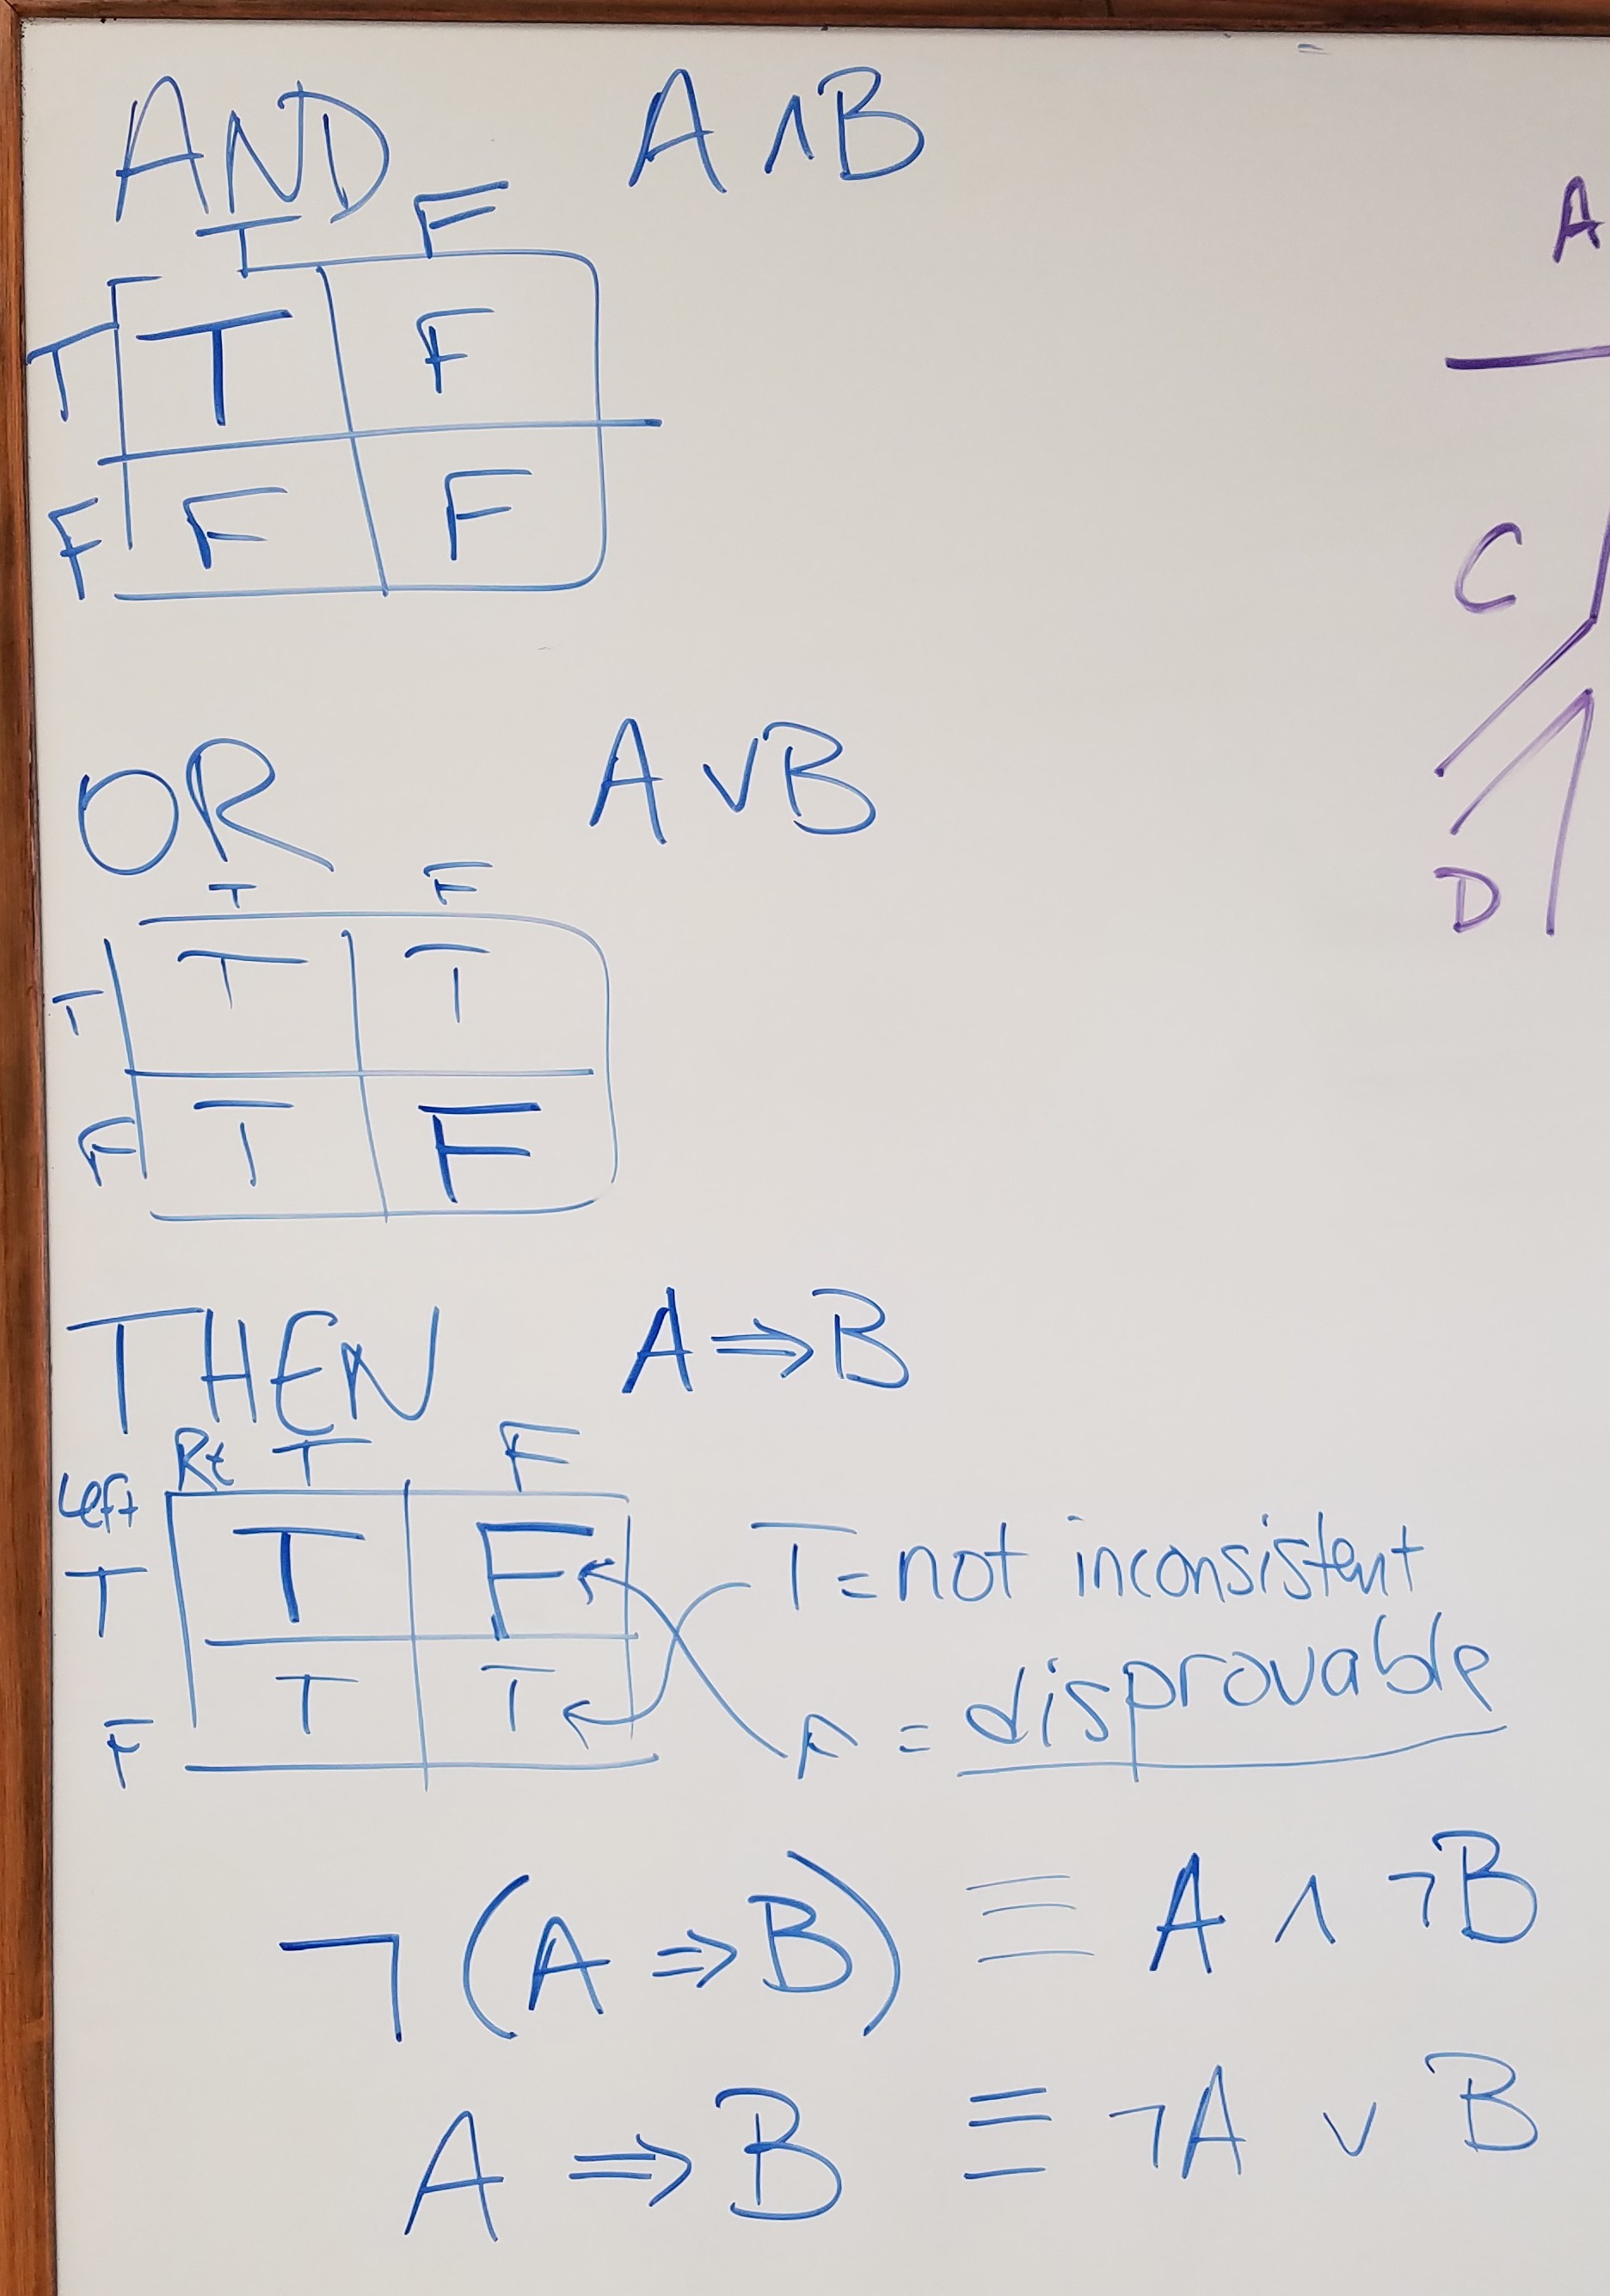 AND A ∧ B
T F
T T F
F F F
OR A ∨ B
T F
T T T
F T F
THEN A ⇒ B
Rt T F
Left
T T F T = not inconsistent
F T T F = disprovable
¬ (A ⇒ B) ≡ A ∧ ¬B
A ⇒ B ≡ ¬A ∨ B
A
C
D